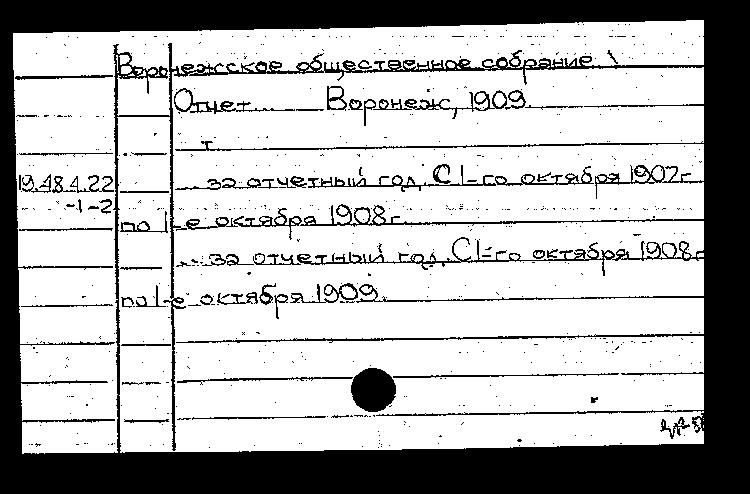 Воронежское общественное собрание.
Отчет... Воронеж, 1909.
т
19.48.4.22 ... за отчетный год. С 1-го октября 1907г.
-1-2
по 1-е октября 1908г.
... за отчетный год. С 1-го октября 1908г
по 1-е октября 1909.